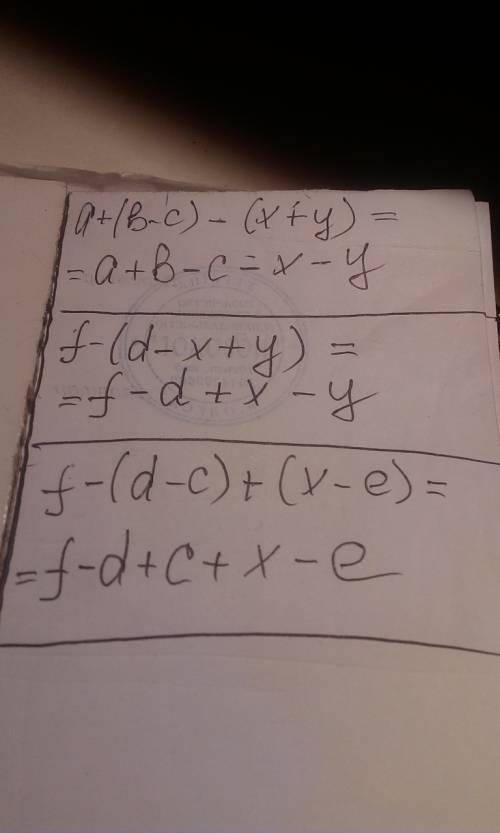 a+(b-c)-(x+y)=
=a+b-c-x-y
f-(d-x+y)=
=f-d+x-y
f-(d-c)+(x-e)=
=f-d+c+x-e